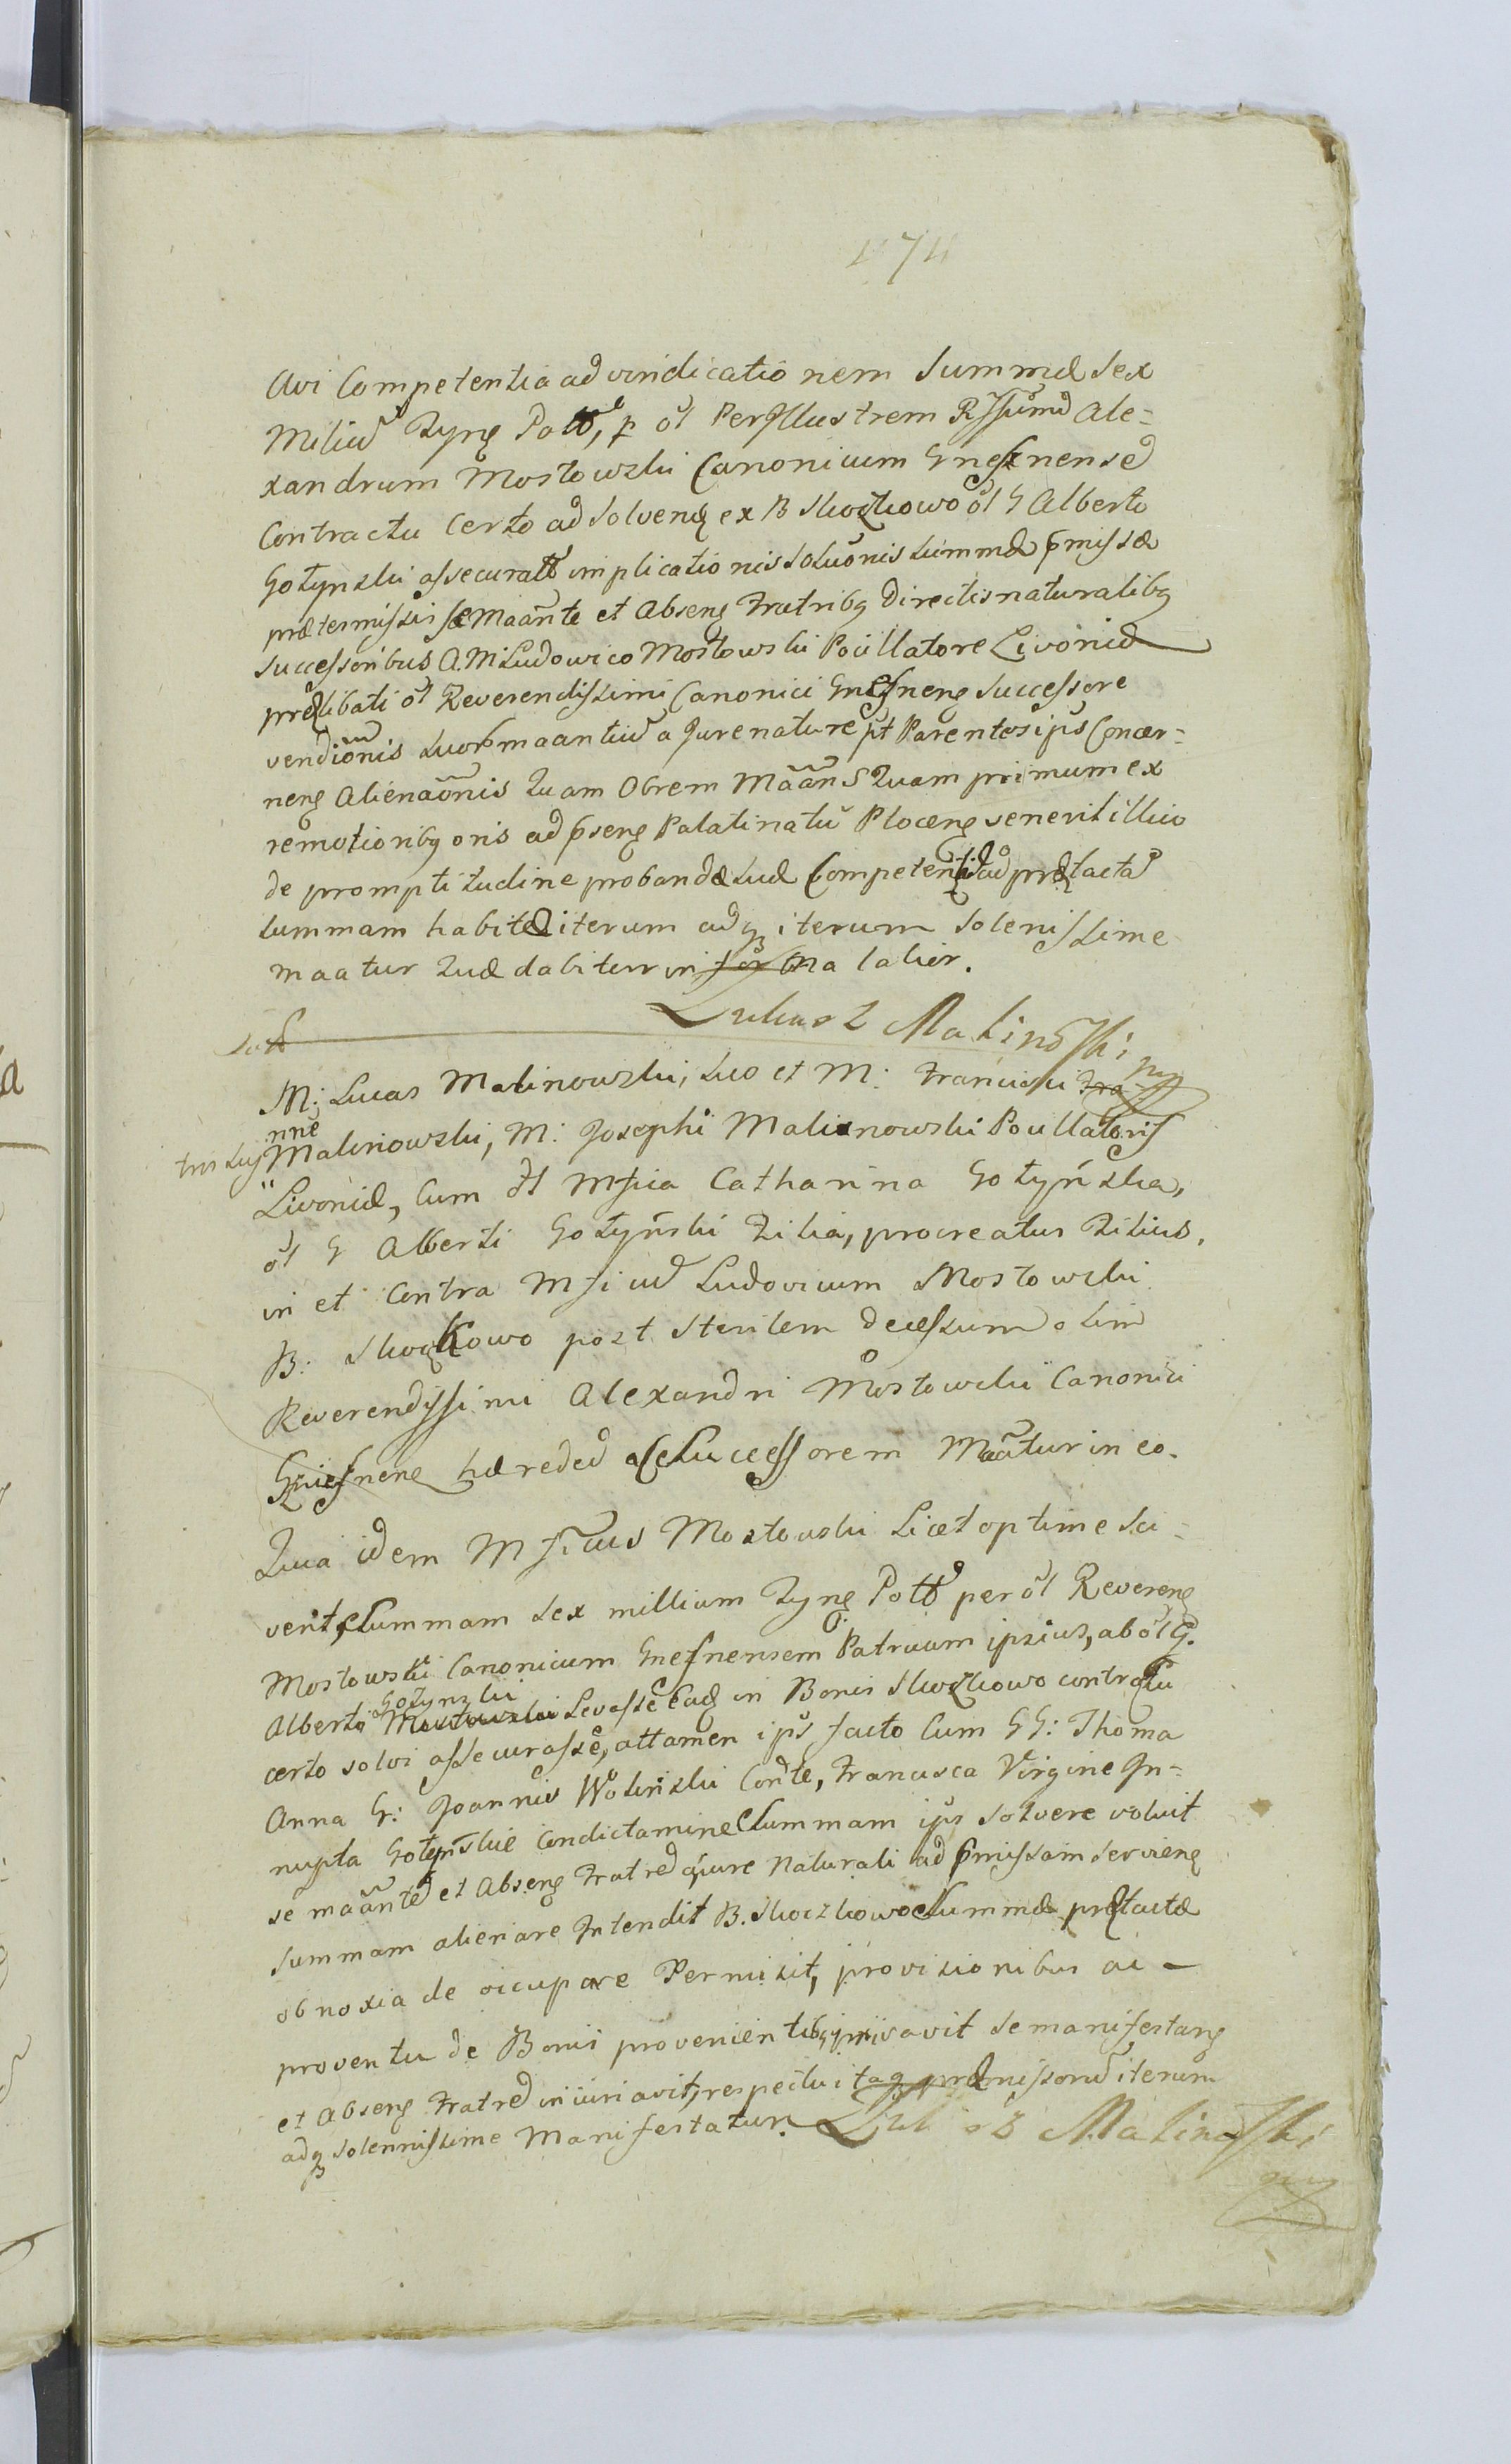 Avi Competentia ad vindicationem Summæ Sex
Miliū Zyng Poll, p ol PerIllustrem Rssūm Ale-
xandrum Mostowski Canonicum Gnesnensē
Contractu Certo ad Solveng ex B Skoczkowo ol G Alberto
Gołynski assecuratt implicationis soluonis summæ pmissæ
prætermissis se Maante et Abseng Fratribg Directis naturalibg
Successoribus A. M Ludowico Mostowski Pocillatore Livoniæ
prælibati ol Reverendissimi Canonici Gnesneng Successore
vendionis maantiū a Jure nature pt Parentes ips Concer-
neng Alienaonis Quam Obrem Maans Quam primum ex
remotioribg oris ad pseng Palatinatū Ploceng venerit illico
de promptitudine probandæ suæ Competentiæ ad prætactā
summam habitæ iterum adq iterum Solenissime
maatur Quæ dabitur in forma latior.
Lukasz Malinoski mp
M: Lucas Malinowski, suo et M: Francisci Fra
tris sui nne Malinowski, M: Josephi Malinowski Pocillatoris
Livoniæ, Cum ol Mfica Catharina Gołyńska,
ol G Alberti Gołyński Filia, procreatus Filius,
in et Contra Mficū Ludovicum Mostowski
B: Skoczkowo post Sterilem decessum olim
Reverendissimi Alexandri Mostowski Canonici
Gniesneng hæredē ac Successorem Maatur in eo.
Quia idem Mficus Mostowski Licet optime sci-
verit, Summam sex millium Zyng Poll per ol Revereng
Mostowski Canonicum Gnesnensem Patruum ipsius, ab ol G.
Alberto Mostowski Gołynski Levasse Eadg in Bonis Skoczkowo contractu
certo solvi assecurasse, attamen ips facto Cum GG: Thoma
Anna G: Joannis Wołinski Conte, Francisca Virgine In-
nupta Gołynskie Condictamine Summam ips Solvere voluit
se maantē et Abseng Fratrē a jure Naturali ad pmissam servieng
Summam alienare Intendit B. Skoczkowo Summæ prætactæ
obnoxia de occupare Permisit, provisionibus ac
proventu de Bonis provenientibg privavit se manifestang
et Abseng Fratrē iniuriavit, respectu itaq præmissorū iterum
adq Solennissime Manifestatur. Lukasz Malinoski
mp